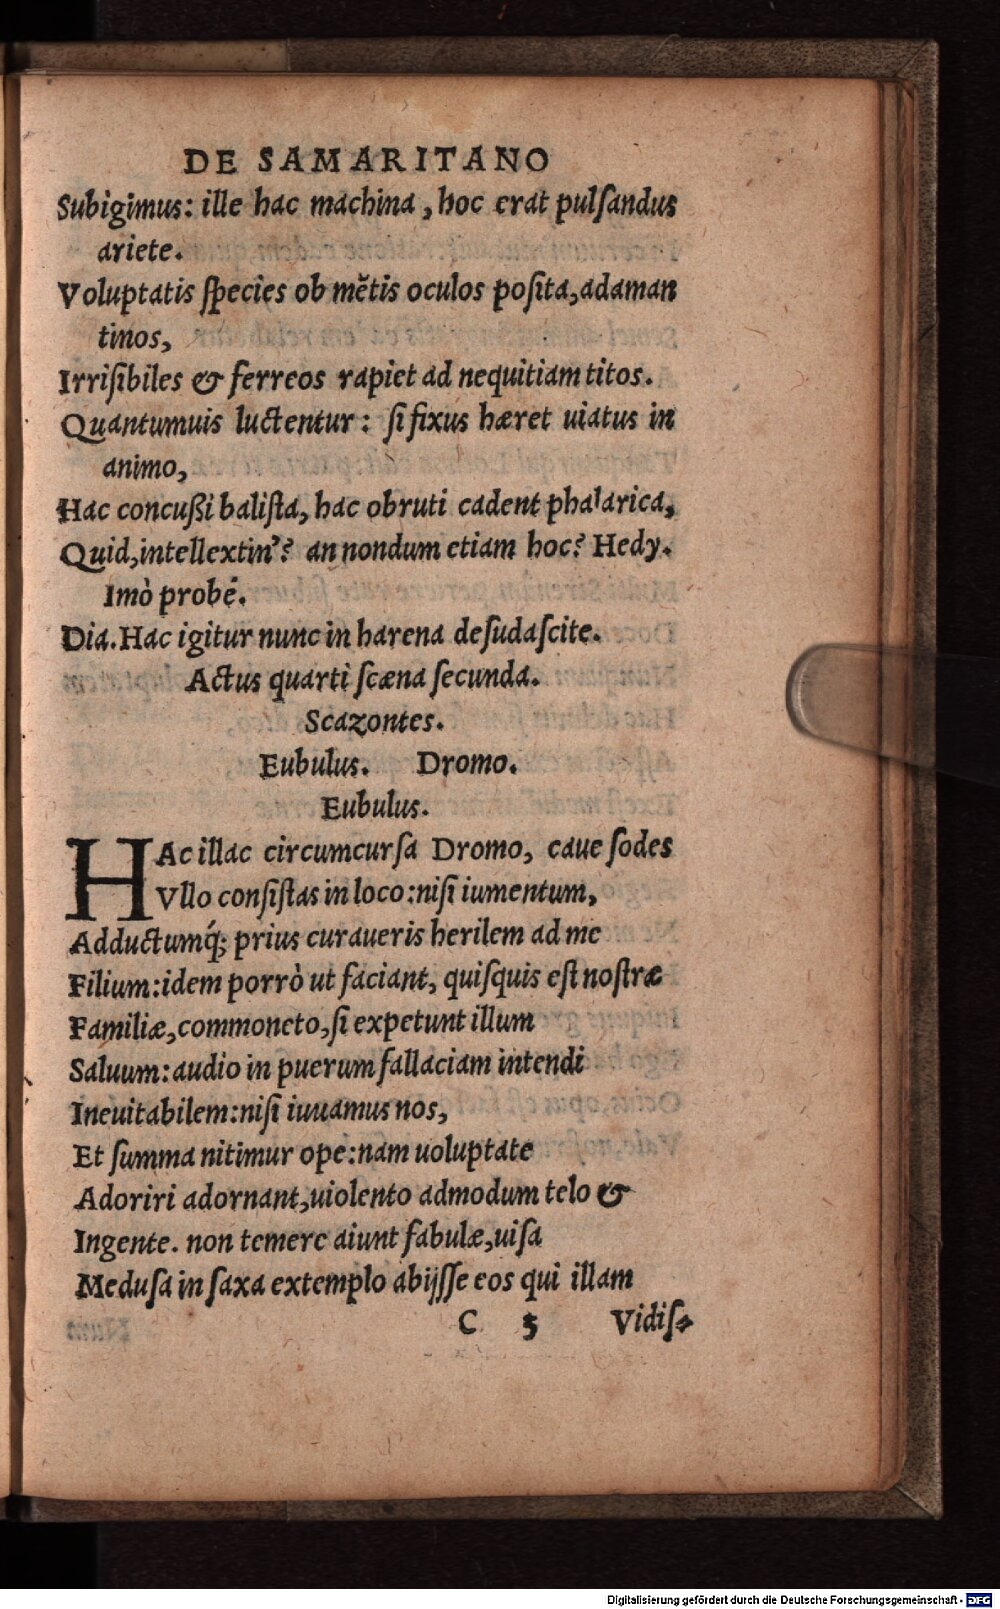 DE SAMARITANO
Subigimus: ille hac machina, hoc erat pulſandus
ariete.
Voluptatis ſpecies ob mẽtis oculos poſita, adaman
tinos,
Irriſibiles & ferreos rapiet ad nequitiam titos.
Quantumuis luctentur: ſi fixus hæret uiatus in
animo,
Hac concußi baliſta, hac obruti cadent phalarica,
Quid, intellextin'? an nondum etiam hoc? Hedy.
Imò probè.
Dia. Hac igitur nunc in harena deſudaſcite.
Actus quarti ſcæna ſecunda.
Scazontes.
Eubulus. Dromo.
Eubulus.
HAc illac circumcurſa Dromo, caue ſodes
Vllo conſiſtas in loco: niſi iumentum,
Adductumq́; prius curaueris herilem ad me
Filium: idem porrò ut faciant, quiſquis eſt noſtræ
Familiæ, commoneto, ſi expetunt illum
Saluum: audio in puerum fallaciam intendi
Ineuitabilem: niſi iuuamus nos,
Et ſumma nitimur ope: nam uoluptate
Adoriri adornant, uiolento admodum telo &
Ingente. non temere aiunt fabulæ, uiſa
Meduſa in ſaxa extemplo abijſſe eos qui illam
C 5 Vidiſ-
Digitalisierung gefördert durch die Deutsche Forschungsgemeinschaft - DFG